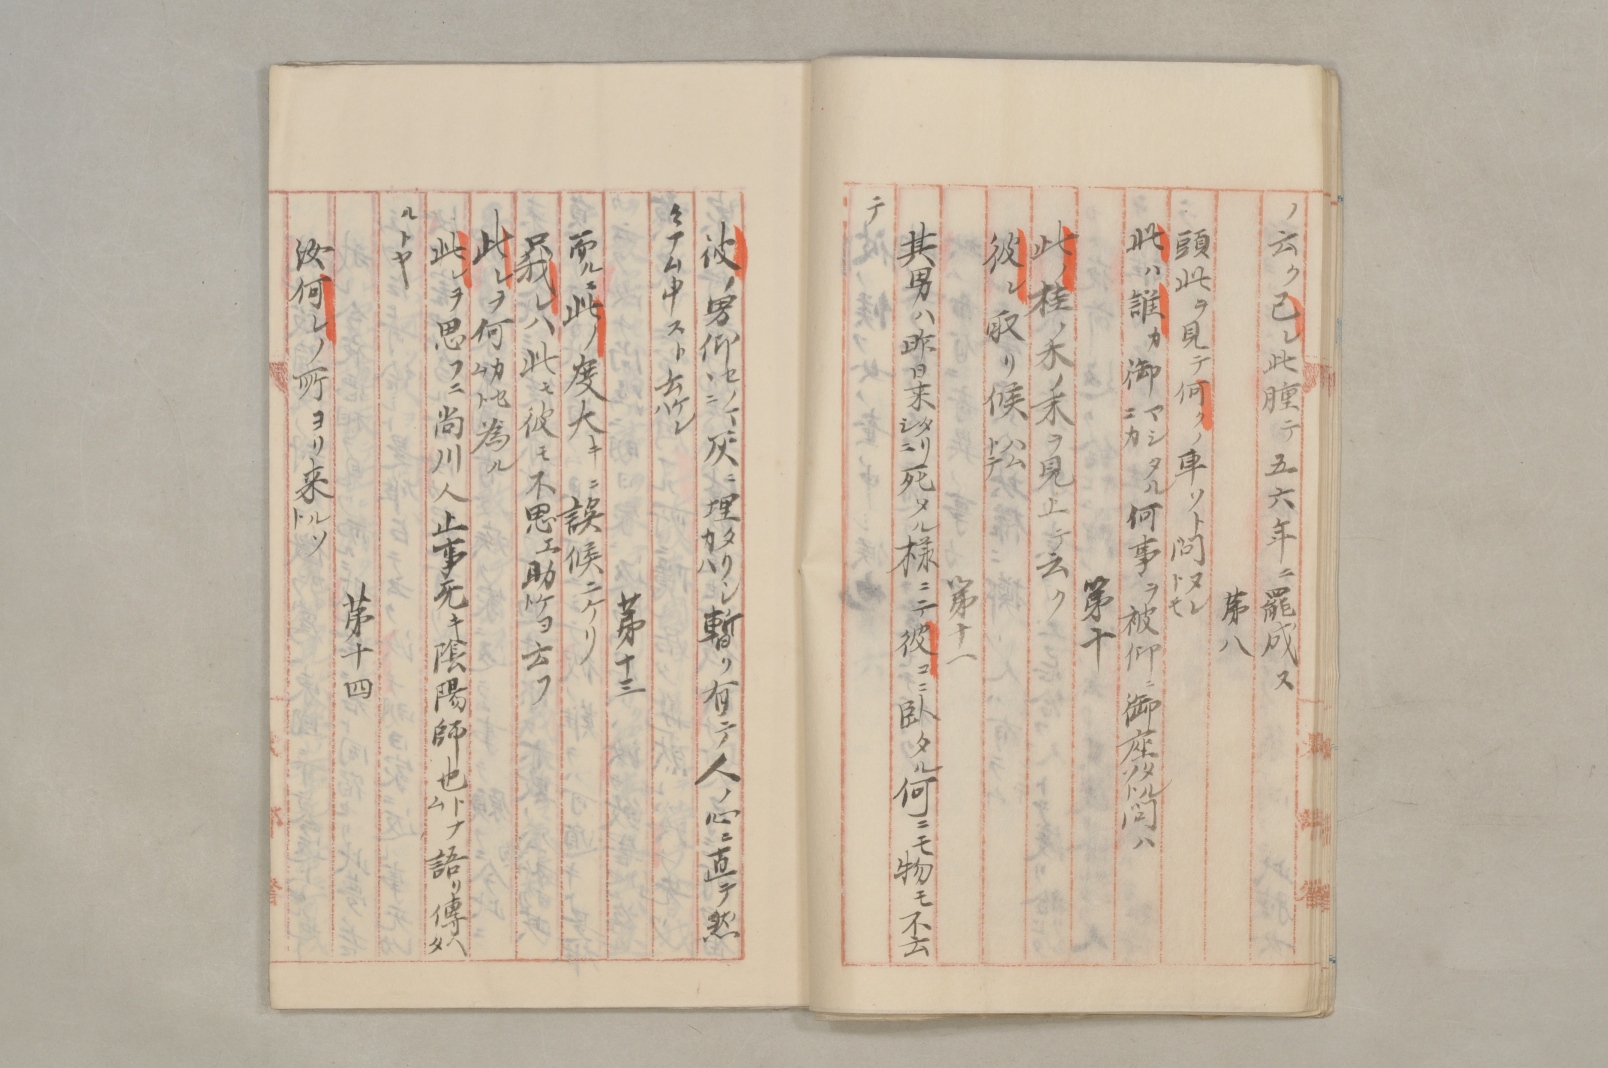 ノ云ク己レ此腫テ五六年ニ罷成ヌ
第八
頭此ヲ見テ何クノ車ソト問ヌレトモ
此ハ誰カ御マシタルニカ何事ヲ被仰ニ御座タルソト問ハ
第十
此ノ桂ノ木ノ末ヲ見上テ云ク
彼レ取リ候ハムトテ
第十一
其男ハ昨日来タリシニ死タル様ニテ彼コニ臥タル何ニモ物モ不云
テ
彼ノ男仰セノ灰ニ埋タリシカハ暫ク有テ人ノ心ニ直テ然
々ナム申スト云ケレハ
第十三
而ルニ此ノ度大キニ誤候ニケリ
我レハ此モ彼モ不思エ助ケヨト云フ
此レヲ何カセムト為ル
此レヲ思フニ尚川人止事死キ陰陽師也トナム語リ傳ヘタ
ルトヤ
第十四
汝何レノ所ヨリ来ルソト